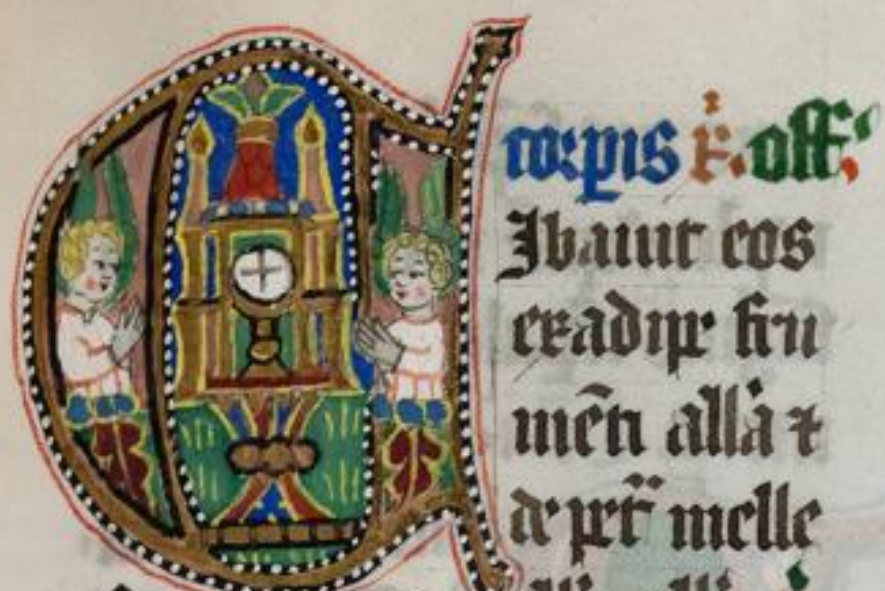 corpis off
Jbauit eos
exadipe fru
mēti alla ⁊
de pet melle